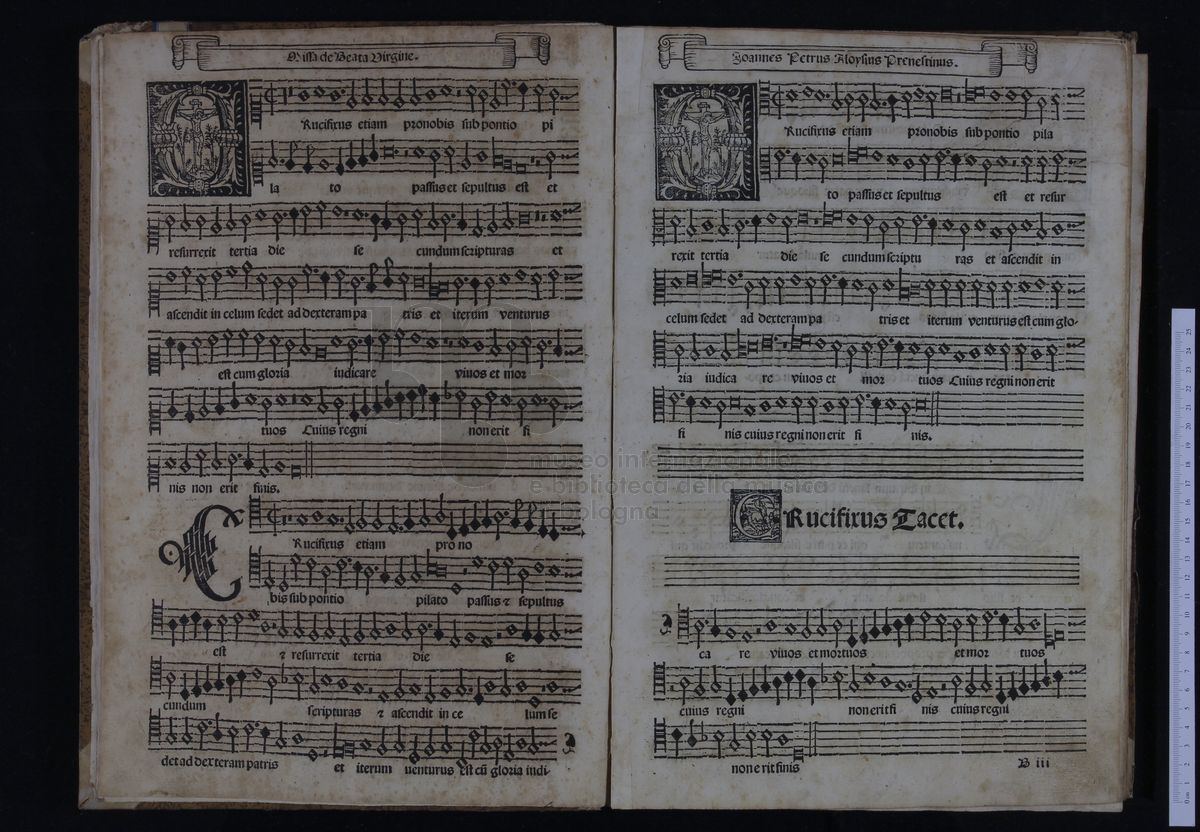 Missa de Beata Virgine.
Rucifixus etiam pronobis sub pontio pi
la to passus et sepultus est et
resurrexit tertia die se cundum scripturas et
ascendit in celum sedet ad dexteram pa tris et iterum venturus
est cum gloria iudicare viuos et mor
tuos Cuius regni non erit fi
nis non erit finis.
CRucifixus etiam pro no
bis sub pontio pilato passus & sepultus
est & resurrexit tertia die se
cundum scripturas & ascendit in ce lum se
det ad dexteram patris et iterum uenturus est cũ gloria iudi-
Joannes Petrus Aloysius Prenestinus.
Rucifixus etiam pronobis sub pontio pila
to passus et sepultus est et resur
rexit tertia die se cundum scriptu ras et ascendit in
celum sedet ad dexteram pa tris et iterum venturus est cum glo-
ria iudica re viuos et mor tuos Cuius regni non erit
fi nis cuius regni non erit fi nis.
CRucifixus Tacet.
ca re viuos et mortuos et mor tuos
cuius regni non erit fi nis cuius regni
non e rit finis
B iii
museo internazionale
e biblioteca della musica
bologna